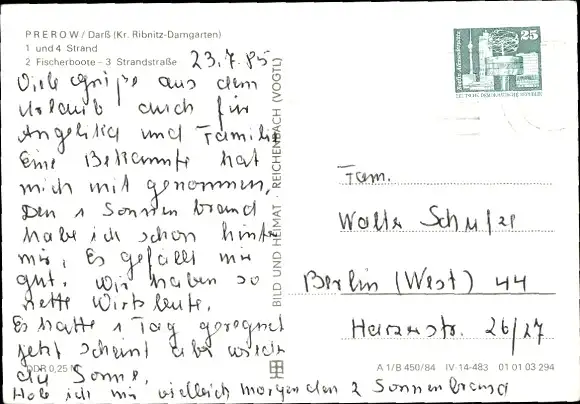 PREROW / Darß (Kr. Ribnitz-Damgarten)
1 und 4 Strand
2 Fischerboote – 3 Strandstraße
23.7.85
Viele Grüße aus dem
Urlaub auch für
Angelika und Familie
Eine Bekannte hat
mich mit genommen.
Den 1 Sonnenbrand
habe ich schon hinter
mir. Es gefällt mir
gut. Wir haben so
nette Wirtsleute.
Es hatte 1 Tag geregnet
jetzt scheint aber wieder
die Sonne.
Hole ich mir vielleich morgen den 2 Sonnenbrand
DDR 0,25 M
BILD UND HEIMAT · REICHENBACH (VOGTL)
25
DEUTSCHE DEMOKRATISCHE REPUBLIK
Fam.
Walter Schulze
Berlin (West) 44
Harzerstr. 26/27
A 1/B 450/84 IV-14-483 01 01 03 294